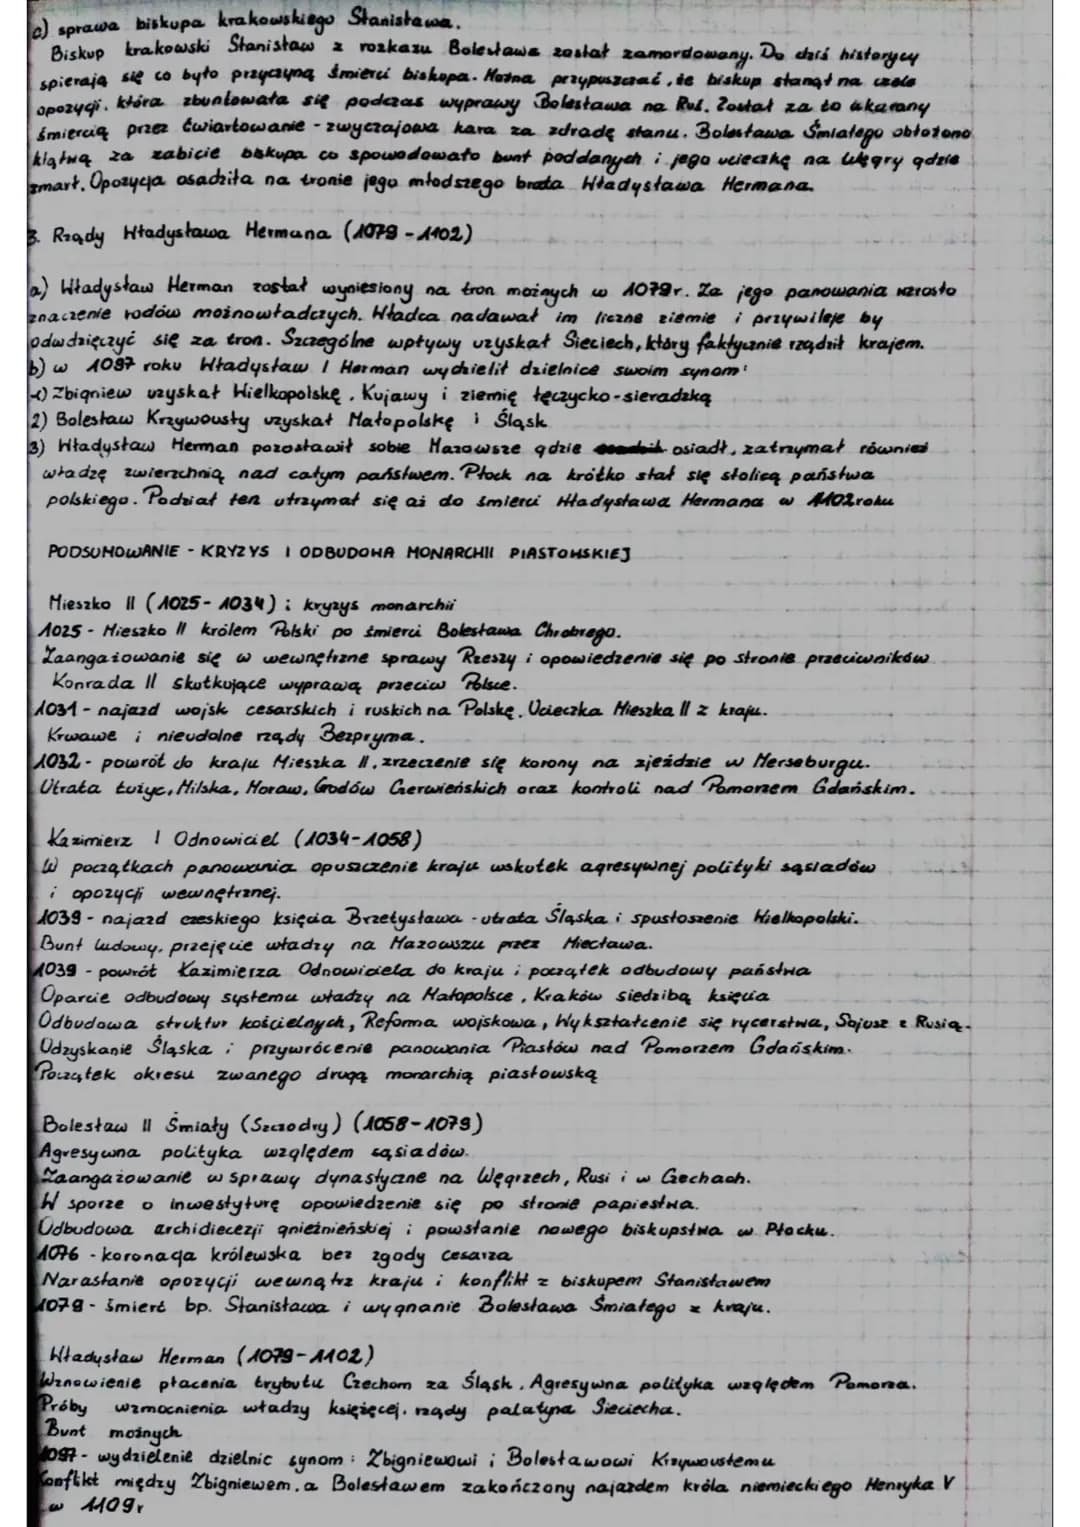 c) sprawa biskupa krakowskiego Stanisława.
Biskup krakowski Stanisław z rozkazu Bolesława został zamordowany. Do dziś historycy
spierają się co było przyczyną śmierci biskupa. Można przypuszczać, że biskup stanął na czele
opozycji, która zbuntowała się podczas wyprawy Bolesława na Ruś. Został za to ukarany
śmiercią przez ćwiartowanie - zwyczajowa kara za zdradę stanu. Bolesława Śmiałego obłożono
klątwą za zabicie biskupa co spowodowało bunt poddanych i jego ucieczkę na Węgry gdzie
zmarł. Opozycja osadziła na tronie jego młodszego brata Władysława Hermana.
3. Rządy Władysława Hermana (1079 - 1102)
a) Władysław Herman został wyniesiony na tron możnych w 1079r. Za jego panowania wzrosło
znaczenie rodów możnowładczych. Władca nadawał im liczne ziemie i przywileje by
odwdzięczyć się za tron. Szczególne wpływy uzyskał Sieciech, który faktycznie rządził krajem.
b) w 1097 roku Władysław I Herman wydzielił dzielnice swoim synom:
1) Zbigniew uzyskał Wielkopolskę, Kujawy i ziemię łęczycko-sieradzką
2) Bolesław Krzywousty uzyskał Małopolskę i Śląsk
3) Władysław Herman pozostawił sobie Mazowsze gdzie osiadł, zatrzymał również
władzę zwierzchnią nad całym państwem. Płock na krótko stał się stolicą państwa
polskiego. Podział ten utrzymał się aż do śmierci Władysława Hermana w 1102roku
PODSUMOWANIE - KRYZYS I ODBUDOWA MONARCHII PIASTOWSKIEJ
Mieszko II (1025- 1034) i kryzys monarchii
1025 - Mieszko II królem Polski po śmierci Bolesława Chrobrego.
Zaangażowanie się w wewnętrzne sprawy Rzeszy i opowiedzenie się po stronie przeciwników
Konrada II skutkujące wyprawą przeciw Polsce.
1031 - najazd wojsk cesarskich i ruskich na Polskę. Ucieczka Mieszka II z kraju.
Krwawe i nieudolne rządy Bezpryma.
1032 - powrót do kraju Mieszka II, zrzeczenie się korony na zjeździe w Merseburgu.
Utrata Łużyc, Milska, Moraw, Grodów Czerwieńskich oraz kontroli nad Pomorzem Gdańskim.
Kazimierz I Odnowiciel (1034-1058)
W początkach panowania opuszczenie kraju wskutek agresywnej polityki sąsiadów
i opozycji wewnętrznej.
1039 - najazd czeskiego księcia Brzetysława - utrata Śląska i spustoszenie Wielkopolski.
Bunt ludowy, przejęcie władzy na Mazowszu przez Miecława.
1039 - powrót Kazimierza Odnowiciela do kraju i początek odbudowy państwa
Oparcie odbudowy systemu władzy na Małopolsce, Kraków siedzibą księcia
Odbudowa struktur kościelnych, Reforma wojskowa, Wykształcenie się rycerstwa, Sojusz z Rusią.
Odzyskanie Śląska i przywrócenie panowania Piastów nad Pomorzem Gdańskim.
Początek okresu zwanego drugą monarchią piastowską
Bolesław II Śmiały (Szczodry) (1058-1079)
Agresywna polityka względem sąsiadów.
Zaangażowanie w sprawy dynastyczne na Węgrzech, Rusi i w Czechach.
W sporze o inwestyturę opowiedzenie się po stronie papiestwa.
Odbudowa archidiecezji gnieźnieńskiej i powstanie nowego biskupstwa w Płocku.
1076 - koronacja królewska bez zgody cesarza
Narastanie opozycji wewnątrz kraju i konflikt z biskupem Stanisławem
1079 - śmierć bp. Stanisława i wygnanie Bolesława Śmiałego z kraju.
Władysław Herman (1079-1102)
Wznowienie płacenia trybutu Czechom za Śląsk. Agresywna polityka względem Pomorza.
Próby wzmocnienia władzy książęcej, rządy palatyna Sieciecha.
Bunt możnych
1097 - wydzielenie dzielnic synom: Zbigniewowi i Bolesławowi Krzywoustemu
Konflikt między Zbigniewem, a Bolesławem zakończony najazdem króla niemieckiego Henryka V
w 1109r